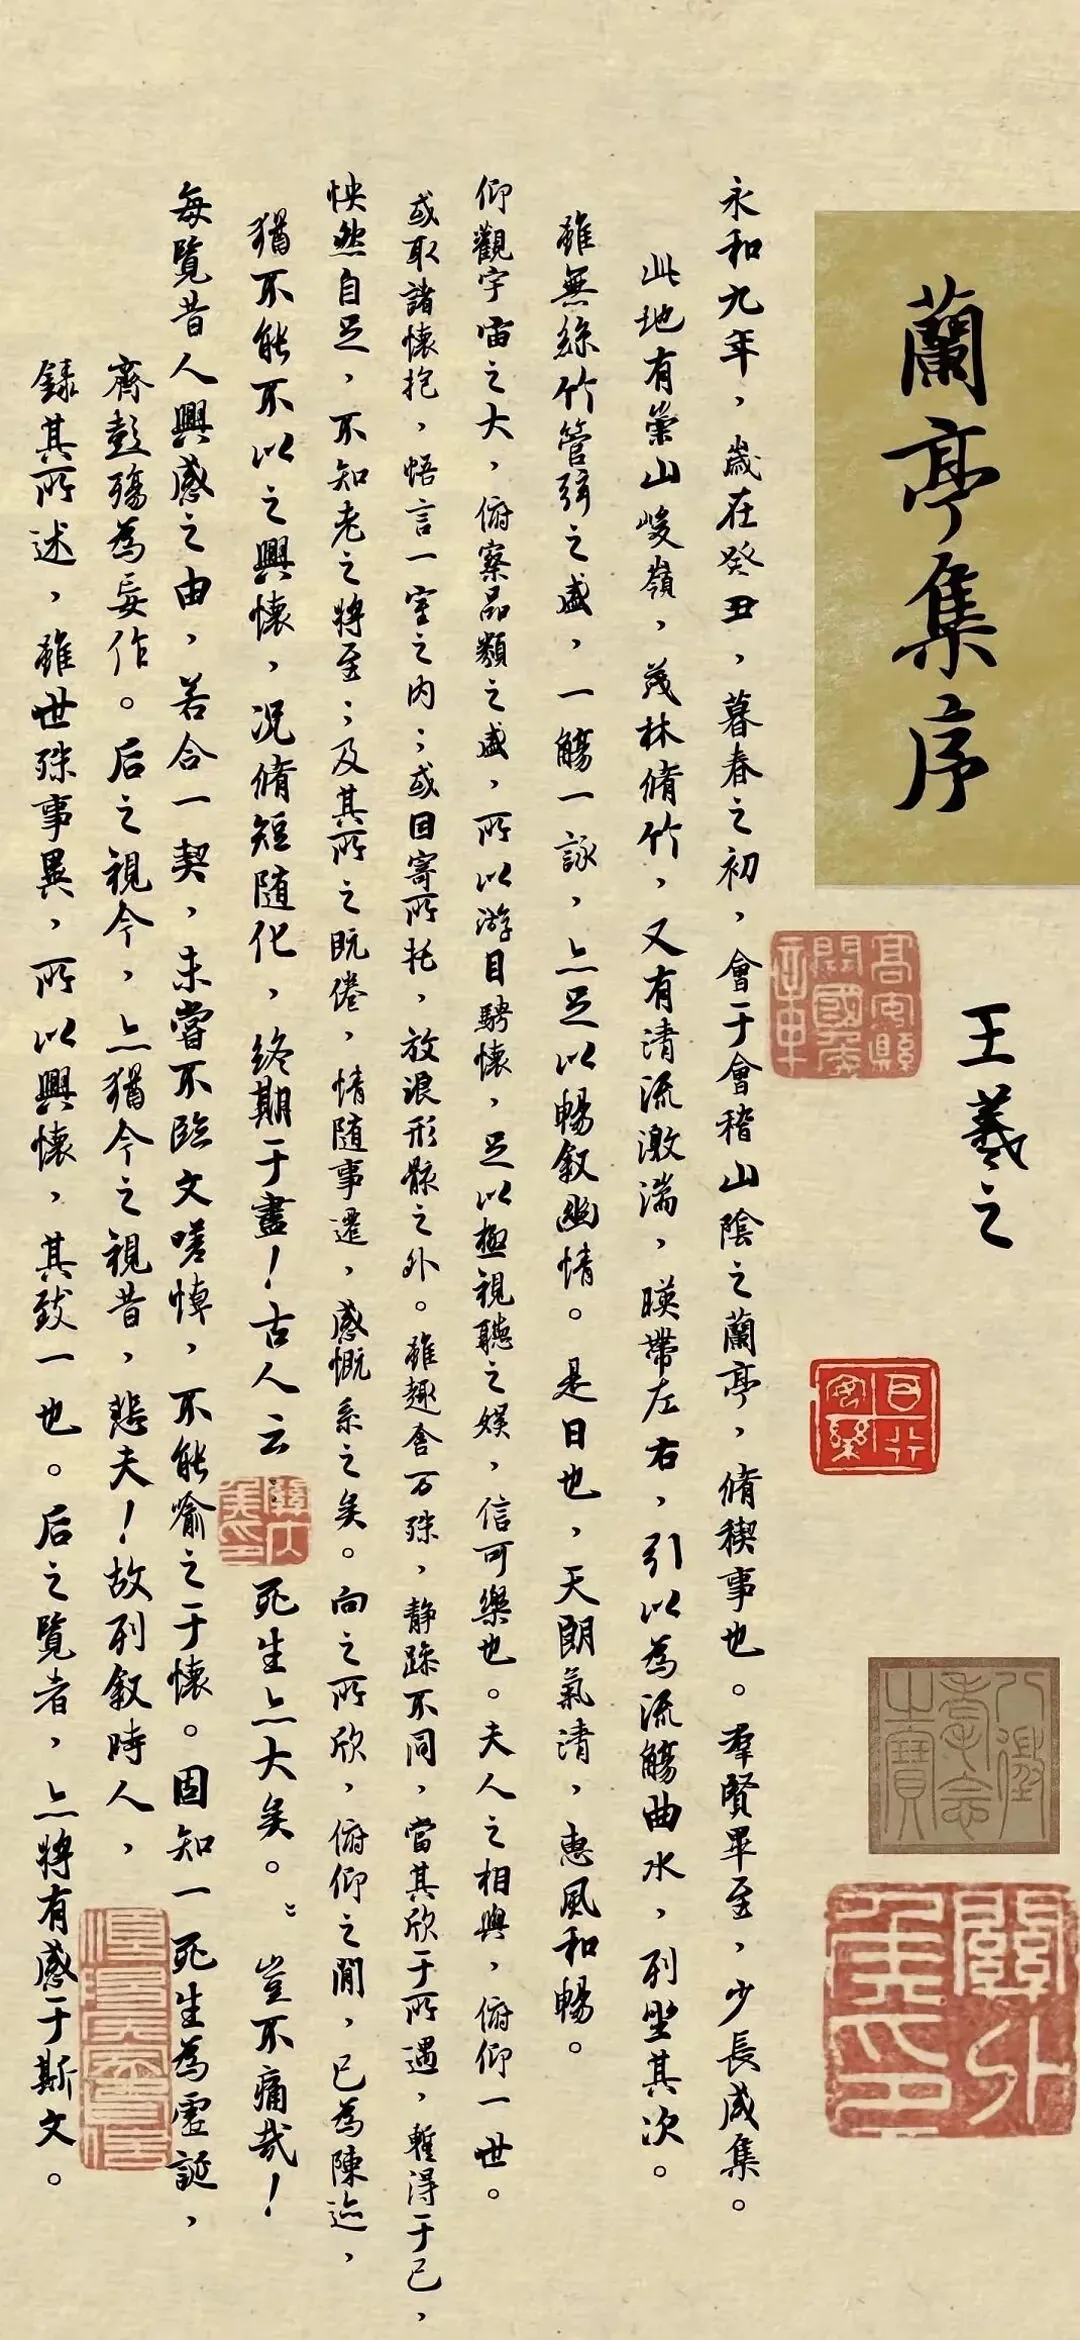 蘭亭集序
王羲之
永和九年，歲在癸丑，暮春之初，會于會稽山陰之蘭亭，脩稧事也。羣賢畢至，少長咸集。
此地有崇山峻嶺，茂林脩竹，又有清流激湍，暎帶左右，引以為流觴曲水，列坐其次。
雖無絲竹管弦之盛，一觴一詠，亦足以暢敘幽情。是日也，天朗氣清，惠風和暢。
仰觀宇宙之大，俯察品類之盛，所以游目騁懷，足以極視聽之娛，信可樂也。夫人之相與，俯仰一世。
或取諸懷抱，悟言一室之內；或因寄所托，放浪形骸之外。雖趣舍万殊，靜躁不同，當其欣于所遇，暫得于己，
怏然自足，不知老之將至；及其所之既倦，情隨事遷，感慨系之矣。向之所欣，俯仰之閒，已為陳迹，
猶不能不以之興懷，况脩短隨化，終期于盡！古人云：死生亦大矣。豈不痛哉！
每覽昔人興感之由，若合一契，未嘗不臨文嗟悼，不能喻之于懷。固知一死生為虛誕，
齊彭殤為妄作。后之視今，亦猶今之視昔，悲夫！故列敘時人，
錄其所述，雖世殊事異，所以興懷，其致一也。后之覽者，亦將有感于斯文。
關外